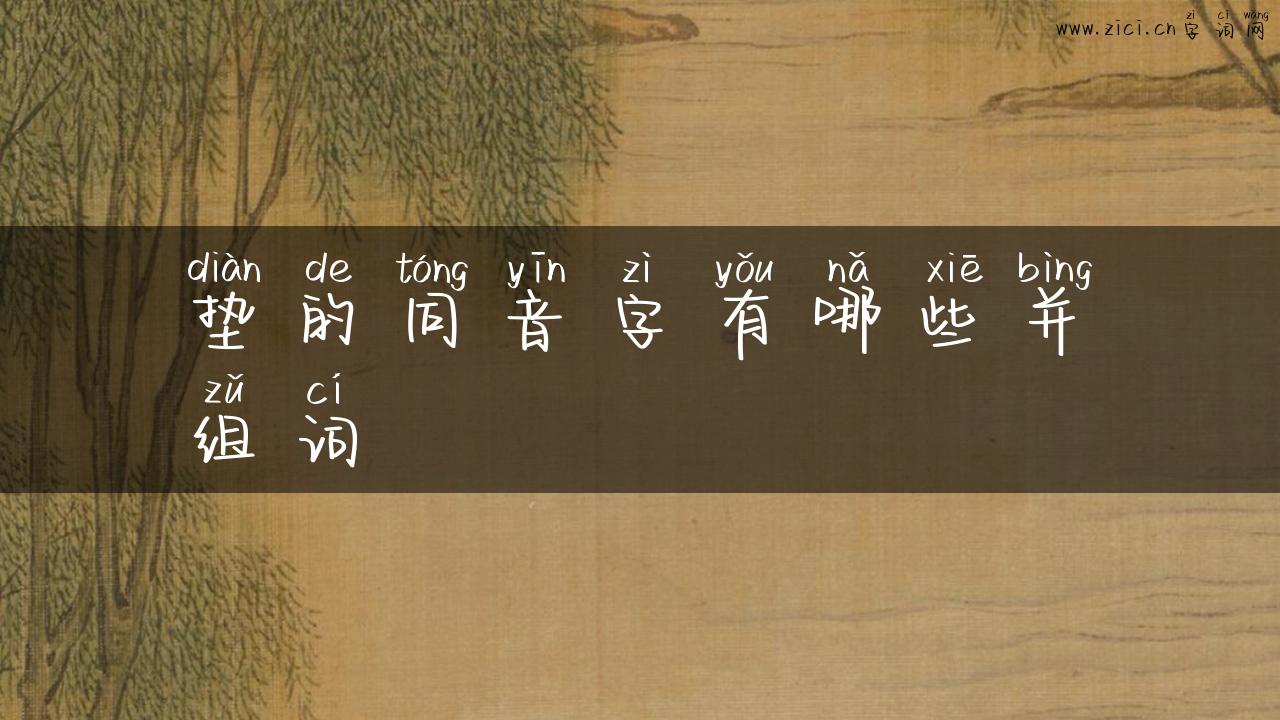 zì cí wǎng
www.zici.cn字词网
diàn de tóng yīn zì yǒu nǎ xiē bìng
垫的同音字有哪些并
zǔ cí
组词